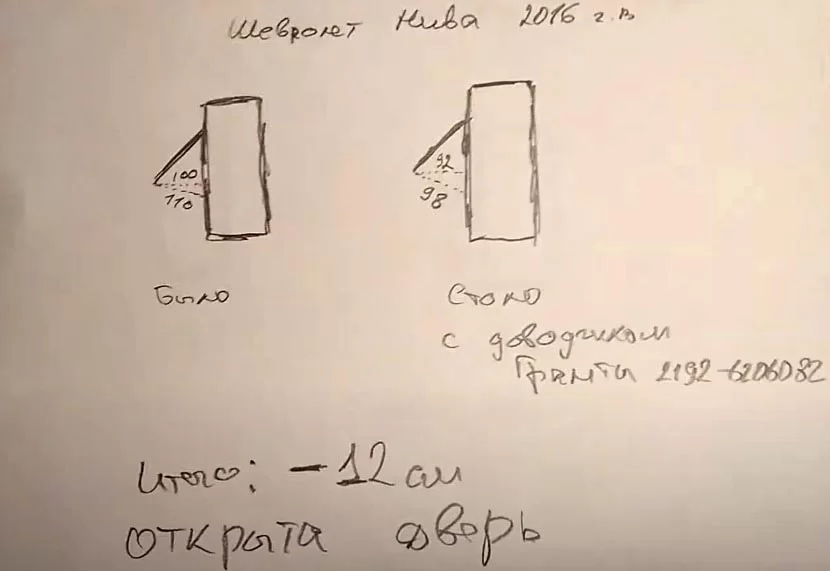 Шевролет Нива 2016 г.в
100
110
92
98
Было
Стало
с доводчиком
Гранты 2192-6206082
Итого: -12 см
открыта дверь